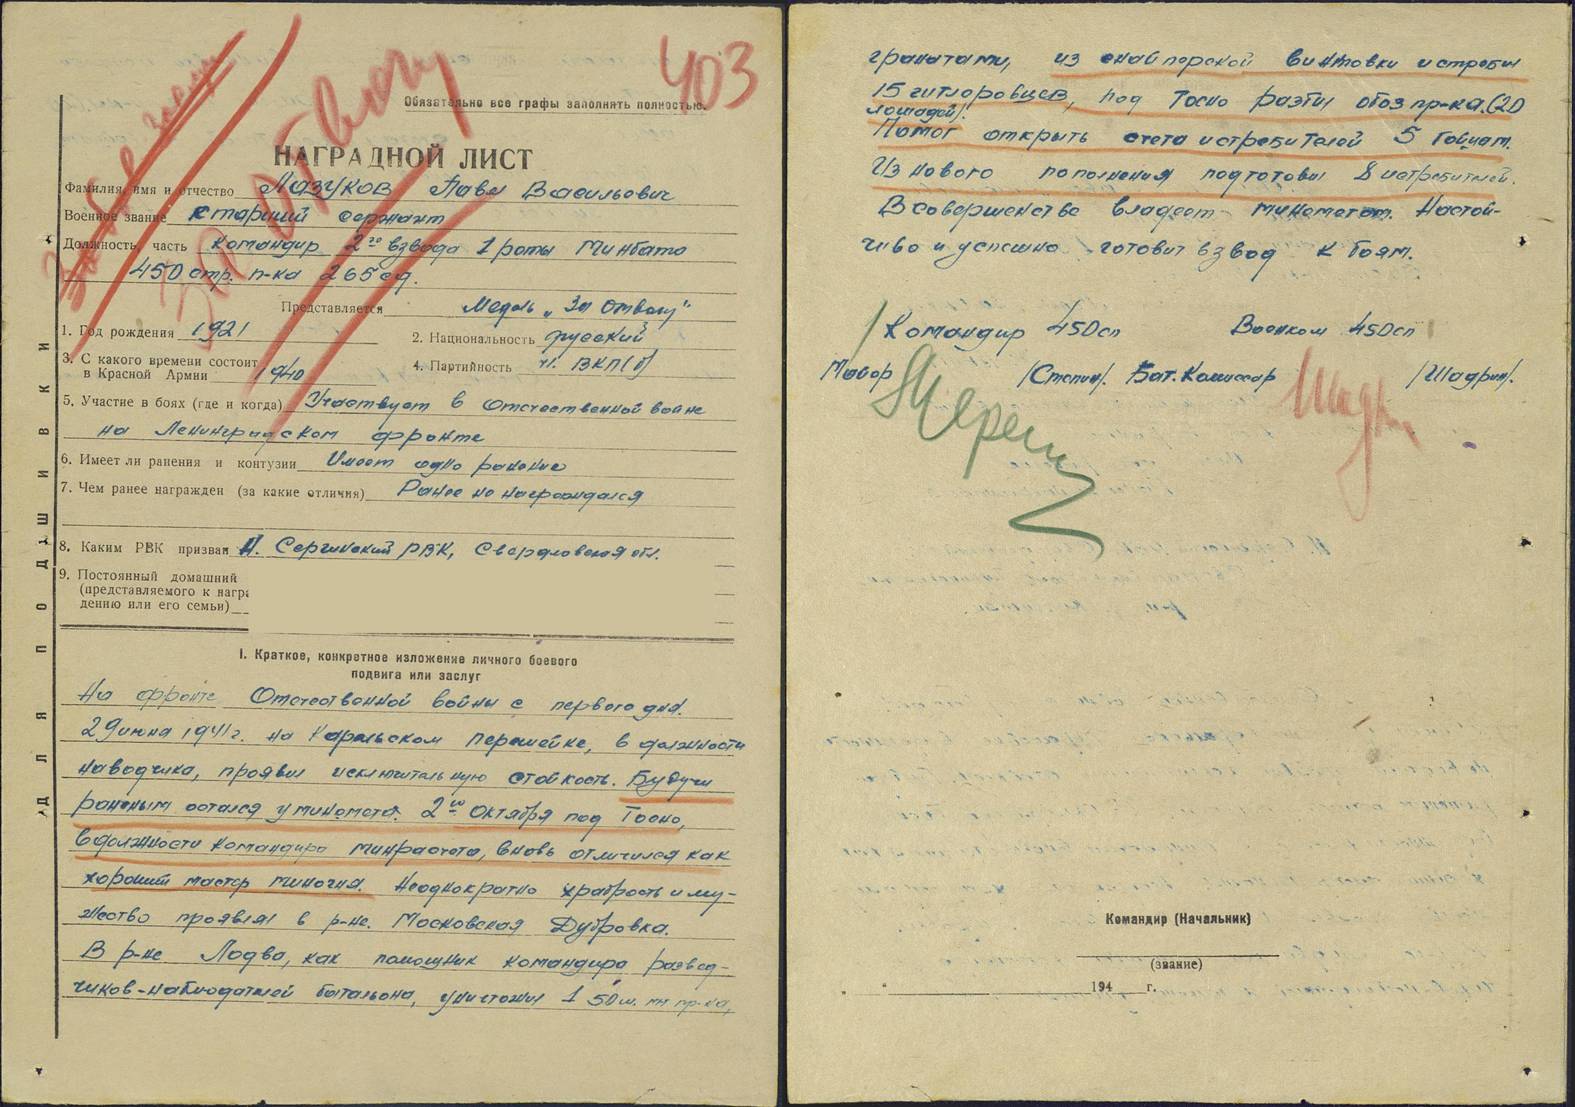 403
За отвагу
Обязательно все графы заполнять полностью.
НАГРАДНОЙ ЛИСТ
Фамилия, имя и отчество Лазуков Павел Васильович
Военное звание старший сержант
Должность, часть командир 2го взвода 1 роты Минбата
450 стр. п-ка 265 сд.
Представляется Медаль „За Отвагу"
1. Год рождения 1921
2. Национальность русский
3. С какого времени состоит
в Красной Армии 1940
4. Партийность чл. ВКП(б)
5. Участие в боях (где и когда) Участвует в отечественной войне
на Ленинградском фронте
6. Имеет ли ранения и контузии Имеет одно ранение
7. Чем ранее награжден (за какие отличия) Ранее не награждался
8. Каким РВК призван Н. Сергинский РВК, Свердловская обл.
9. Постоянный домашний
(представляемого к награ
дению или его семьи)
ДЛЯ ПОДШИВКИ
I. Краткое, конкретное изложение личного боевого
подвига или заслуг
На фронте Отечественной войны с первого дня.
29 июня 1941 г. на Карельском перешейке, в должности
наводчика, проявил исключительную стойкость. Будучи
раненым остался у миномета. 2го октября под Тосно,
в должности командира минрасчета, вновь отличился как
хороший мастер миногня. Неоднократно храбрость и му-
жество проявлял в р-не. Московская Дубровка.
В р-не Лодва, как помощник командира развед-
чиков-наблюдателей батальона, уничтожил 1 50 м. мн пр-ка,
гранатами, из снайперской винтовки истребил
15 гитлеровцев, под Тосно разбил обоз пр-ка. (20
лошадей).
Помог открыть счета истребителей 5 бойцам.
Из нового пополнения подготовил 8 истребителей.
В совершенстве владеет минометом. Настой-
чиво и успешно готовит взвод к боям.
Командир 450 сп Военком 450 сп
Майор /Степин/. Бат. Комиссар /Шадрин/.
Командир (Начальник)
(звание)
194 г.